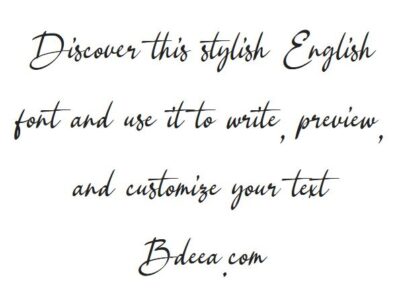 Discover this stylish English
font and use it to write, preview,
and customize your text
Bdeea.com